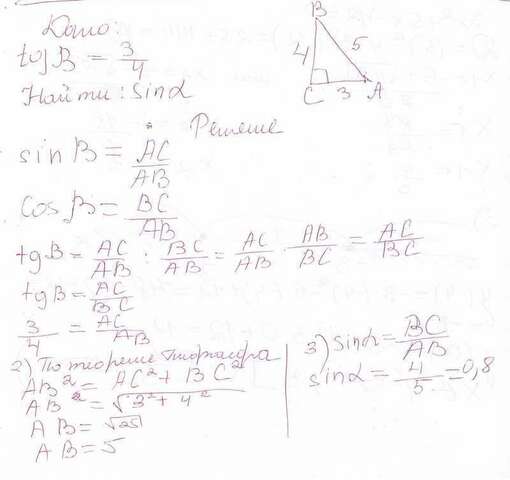 Дано:
tg B = 3/4
Найти: sinα
B
4 5
C 3 A
Решение
sin B = AC/AB
cos B = BC/AB
tg B = AC/AB : BC/AB = AC/AB · AB/BC = AC/BC
tg B = AC/BC
3/4 = AC/AB
2) По теореме Пифагора
AB² = AC² + BC²
AB² = √3² + 4²
AB = √25
AB = 5
3) sinα = BC/AB
sinα = 4/5 = 0,8